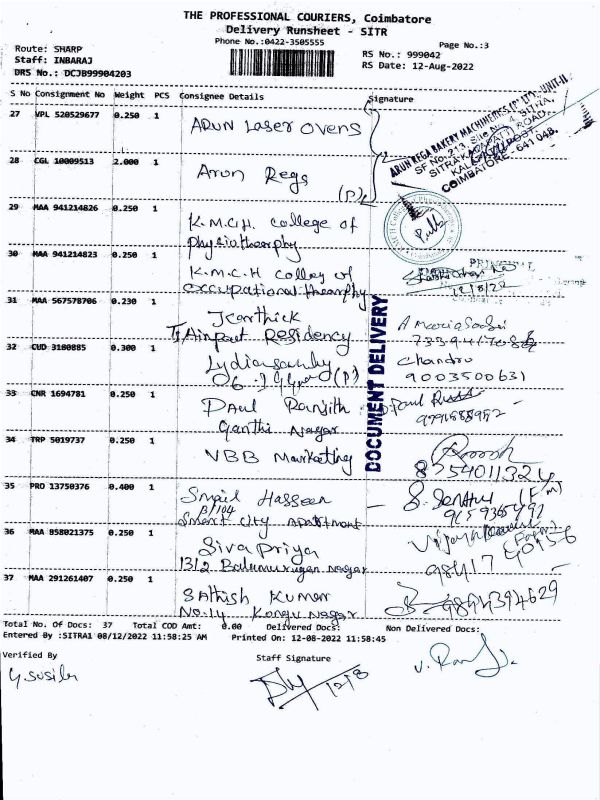 THE PROFESSIONAL COURIERS, Coimbatore
Delivery Runsheet - SITR
Phone No.:0422-3505555
Page No.:3
Route: SHARP
RS No.: 999042
Staff: INBARAJ
RS Date: 12-Aug-2022
DRS No.: DCJB99904203
S No Consignment No Weight PCS Consignee Details Signature
27 VPL 520529677 0.250 1 ARUN Laser OVENS
ARUN REGA BAKERY MACHINERIES (P) LTD.-UNIT-II
SF No. 213, Site No. 4, SITRA,
ROAD,
KALAPATTI POST
COIMBATORE - 641 048.
28 CGL 10009513 2.000 1 Arun Regs
(P)
29 MAA 941214826 0.250 1 K.M.C.H. college of
physiotherapy
30 MAA 941214823 0.250 1 K.M.C.H colleg of
occupational theraphy
PRINCIPAL
12/8/22
31 MAA 567578706 0.230 1 Karthick
Airport Residency
32 CUD 3180885 0.300 1
(P)
Chandru
9003500631
33 CNR 1694781 0.250 1 Paul Ranjith
Ganthi Nagar
DOCUMENT DELIVERY
34 TRP 5019737 0.250 1 VBB Marketing
8254011324
35 PRO 13750376 0.400 1 Smail Hasseen
B/104
Smart City Apartment
36 MAA 858021375 0.250 1 Siva priya
13/2 Balamurugan nagar
37 MAA 291261407 0.250 1 Sathish Kumar
No.14 Kongu Nagar
9894394629
Total No. Of Docs: 37 Total COD Amt: 0.00 Delivered Docs: Non Delivered Docs:
Entered By :SITRA1 08/12/2022 11:58:25 AM Printed On: 12-08-2022 11:58:45
Verified By Staff Signature
12/8